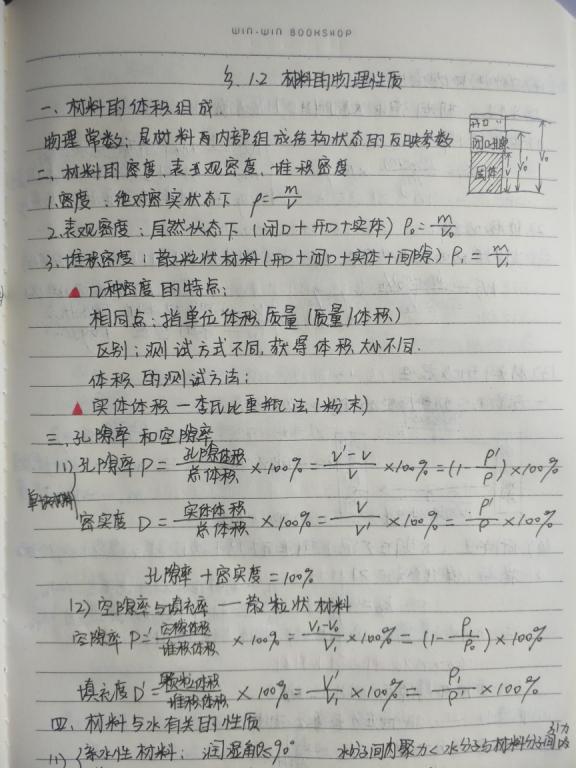 WIN-WIN BOOKSHOP
§. 1.2 材料的物理性质
一、材料的体积组成
开口
闭口
固体
V V₀' V₀
物理常数: 是材料内部组成结构状态的反映参数
二、材料的密度、表观密度、堆积密度
1.密度: 绝对密实状态下 ρ=m/V
2.表观密度: 自然状态下 (闭口+开口+实体) ρ₀=m/V₀
3.堆积密度: 散粒状材料(开口+闭口+实体+间隙) ρ₁=m/V₁
▲ 几种密度的特点:
相同点: 指单位体积质量 (质量/体积)
区别: 测试方式不同, 获得体积大小不同.
体积的测试方法:
▲ 实体体积—李氏比重瓶法 (粉末)
三、孔隙率和空隙率
(1) 孔隙率 P = 孔隙体积/总体积 ×100% = V'-V/V ×100% = (1- ρ'/ρ) ×100%
密实度 D = 实体体积/总体积 ×100% = V/V' ×100% = ρ'/ρ ×100%
孔隙率+密实度=100%
(2) 空隙率与填充率 — 散粒状材料
空隙率 P'= 空隙体积/堆积体积 ×100% = V₁-V₀/V₁ ×100% = (1- ρ₁/ρ₀) ×100%
填充度 D'= 颗粒体积/堆积体积 ×100% = V'/V₁ ×100% = ρ₁/ρ' ×100%
四、材料与水有关的性质
(1) 亲水性材料: 润湿角θ≤90° 水分子间内聚力<水分子与材料分子间引力